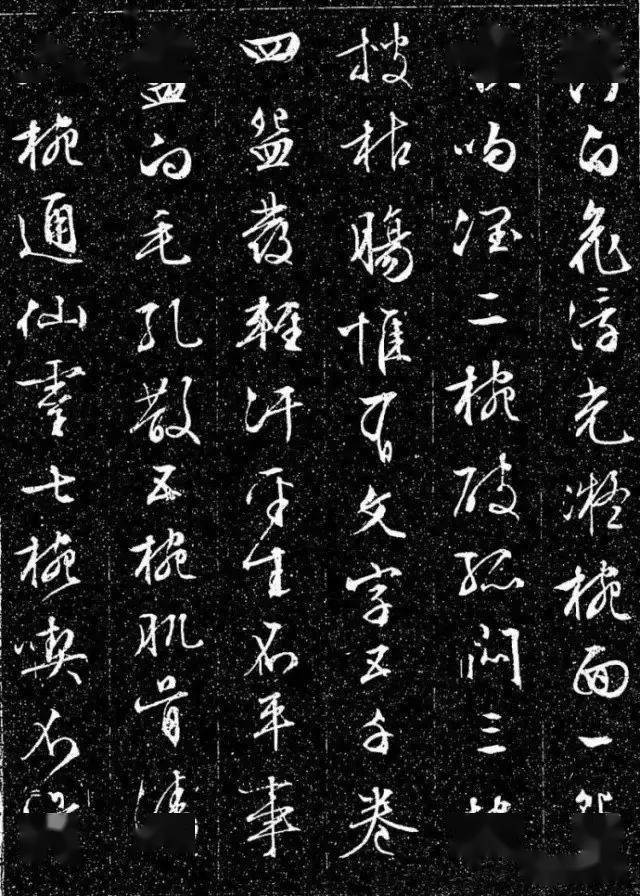 白花浮光凝椀面一
吻溼二椀破孤悶三
搜枯腸惟有文字五千卷
四盌發輕汗平生不平事
向毛孔散五椀肌骨清
椀通仙靈七椀喫不